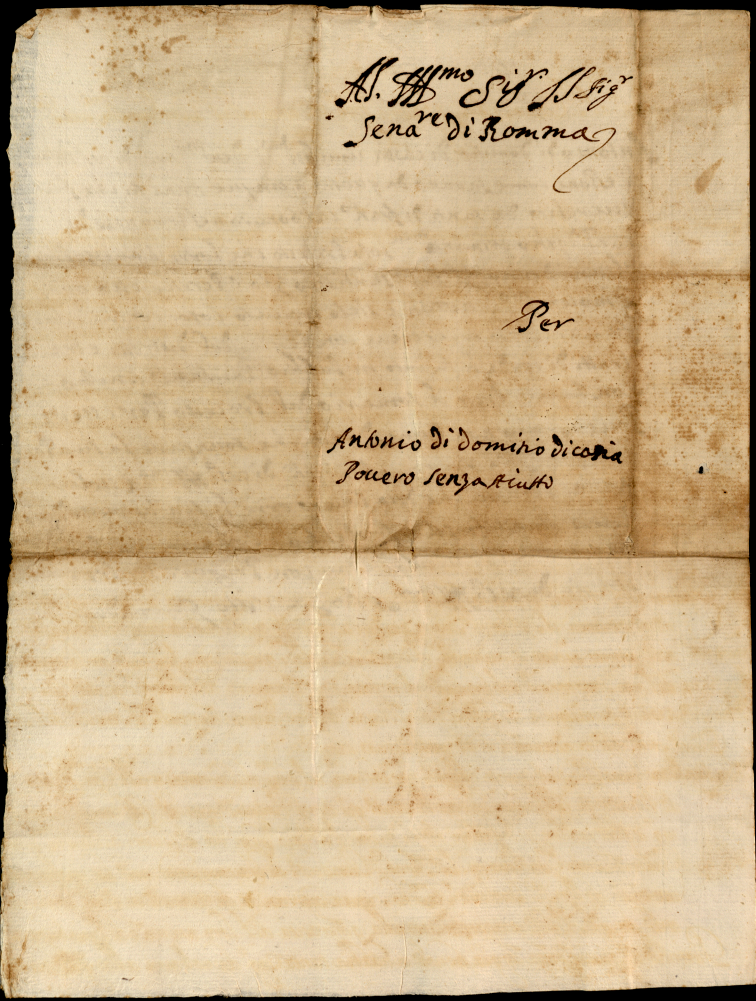 All Ill^mo Sig^r Il Sig^r
Sena^re di Romma
Per
Antonio di Domitio di
Pouero senza Aiutto